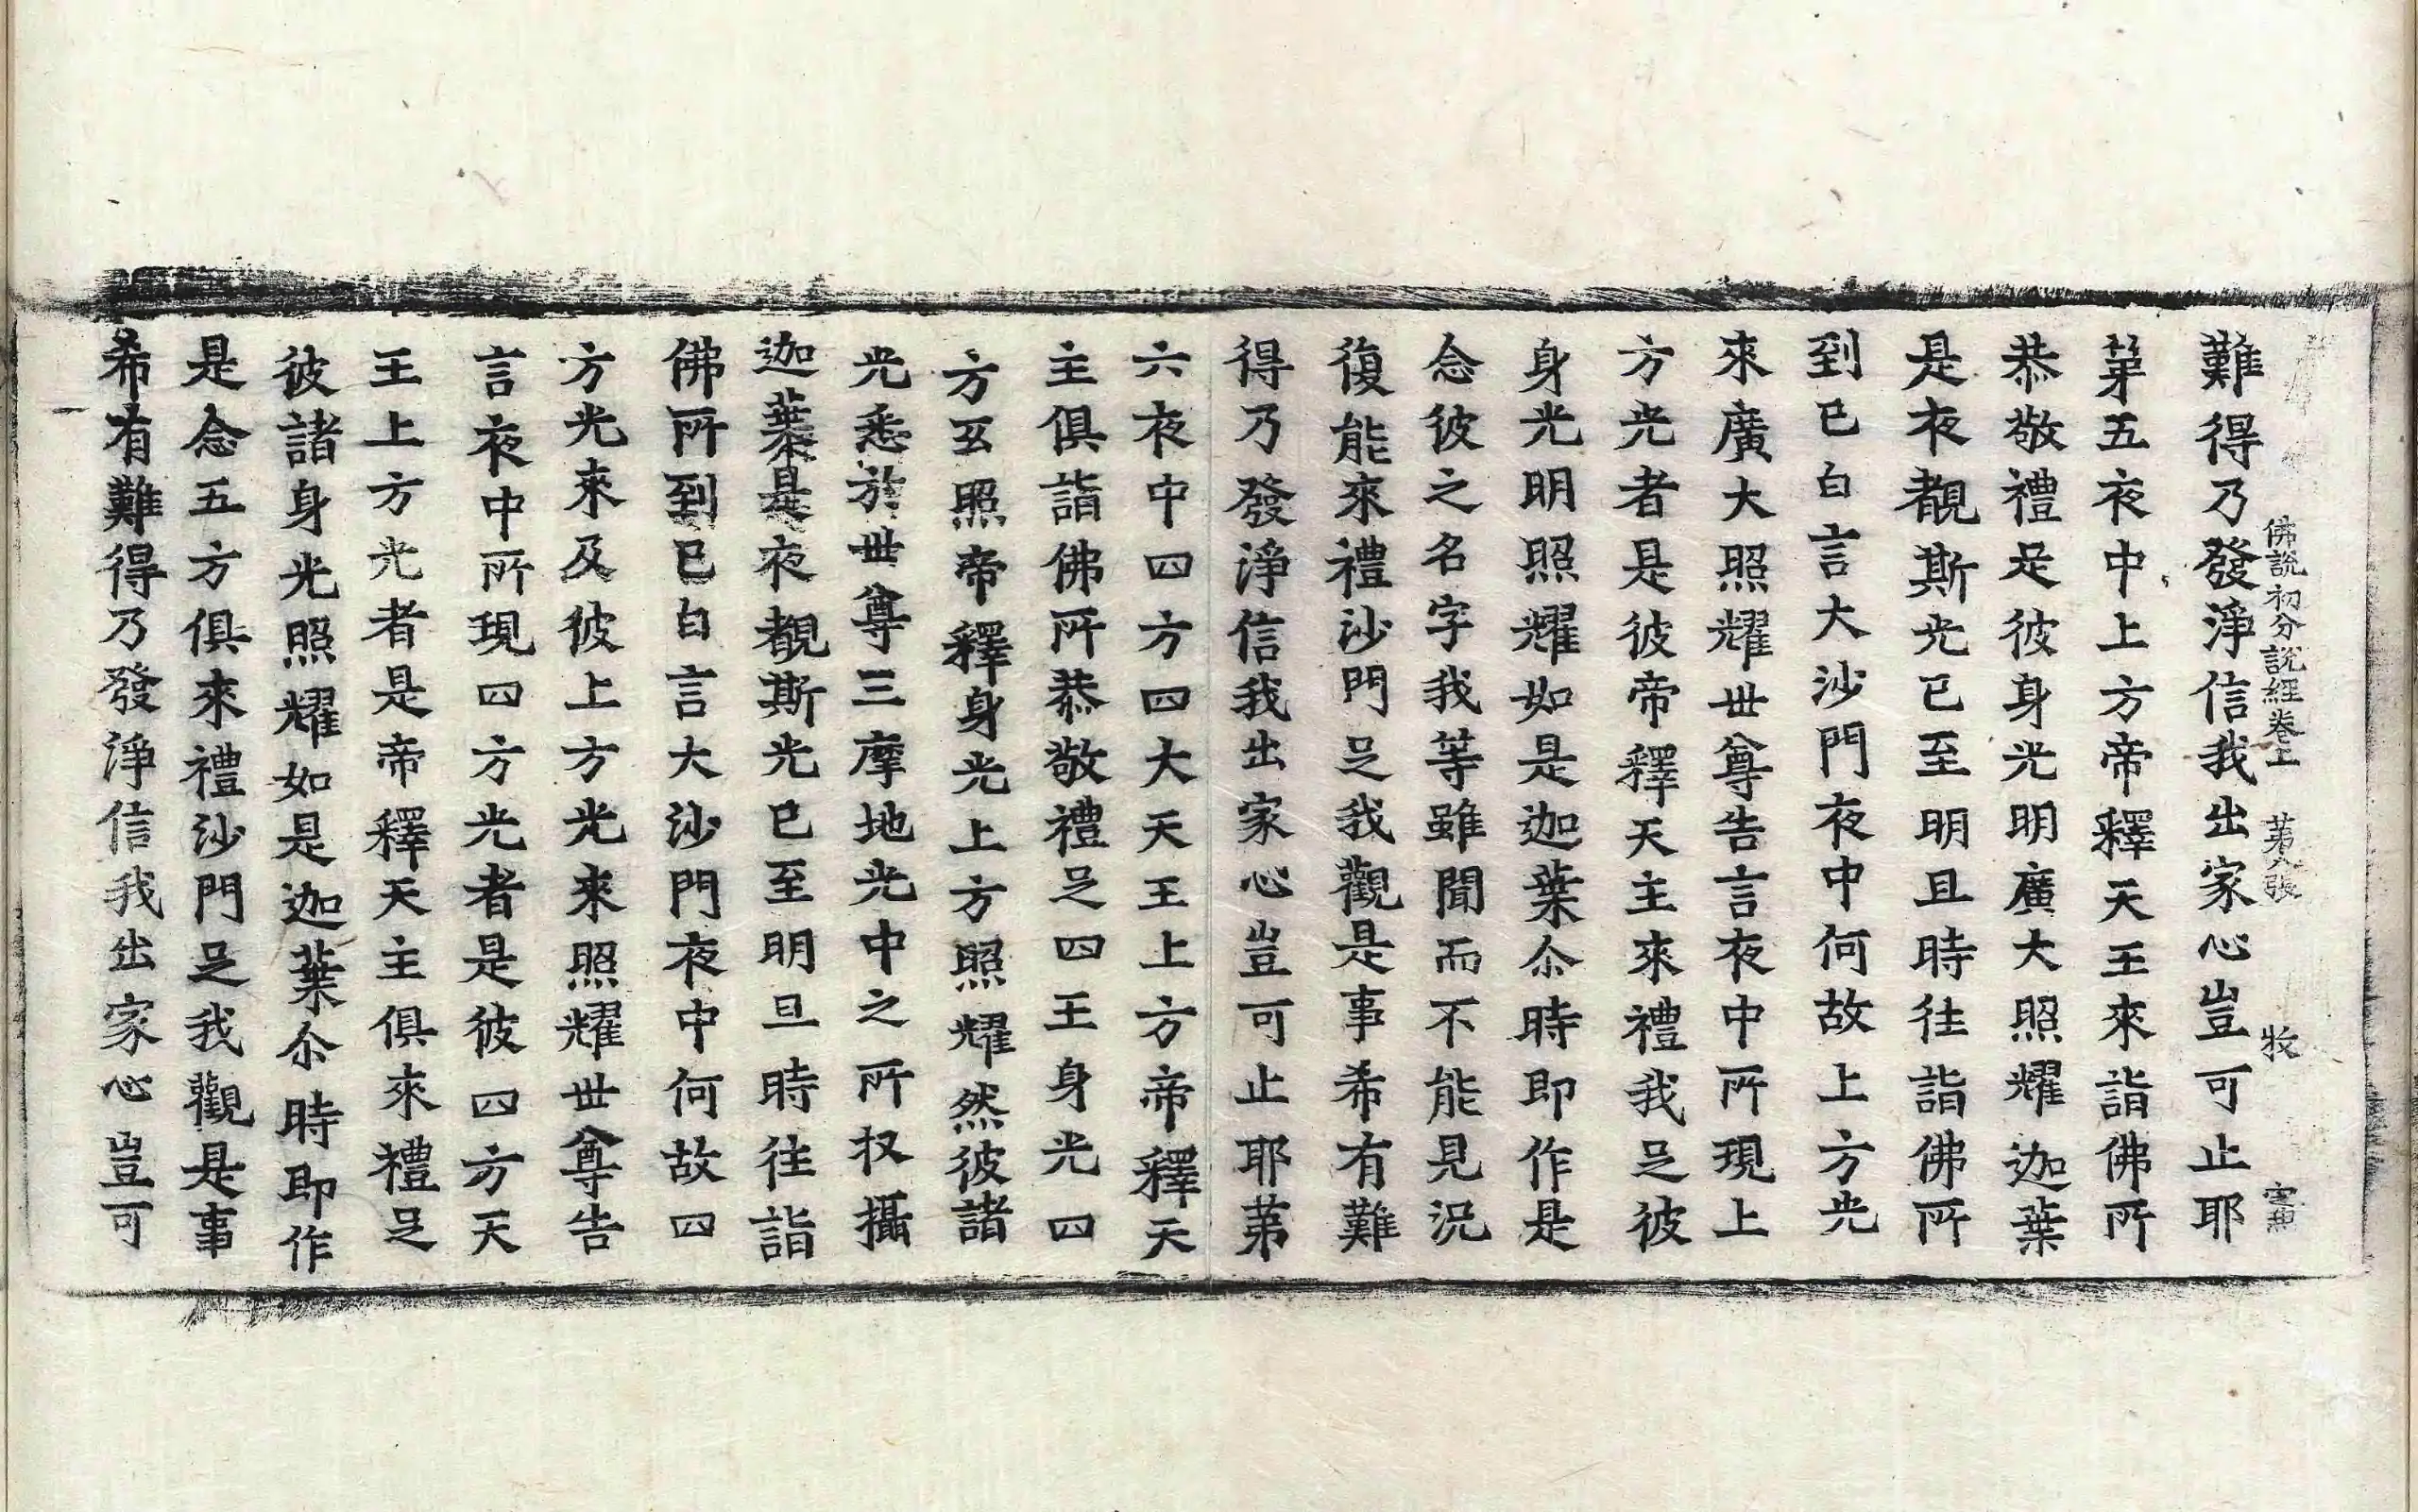 佛說初分說經卷上 第八張 牧
難得乃發淨信我出家心豈可止耶
第五夜中上方帝釋天王來詣佛所
恭敬禮足彼身光明廣大照耀迦葉
是夜覩斯光已至明旦時往詣佛所
到已白言大沙門夜中何故上方光
來廣大照耀世尊告言夜中所現上
方光者是彼帝釋天主來禮我足彼
身光明照耀如是迦葉尒時即作是
念彼之名字我等雖聞而不能見況
復能來禮沙門足我觀是事希有難
得乃發淨信我出家心豈可止耶第
六夜中四方四大天王上方帝釋天
主俱詣佛所恭敬禮足四王身光四
方互照帝釋身光上方照耀然彼諸
光悉於世尊三摩地光中之所攝
迦葉是夜覩斯光已至明旦時往詣
佛所到已白言大沙門夜中何故四
方光來及彼上方光來照耀世尊告
言夜中所現四方光者是彼四方天
王上方光者是帝釋天主俱來禮足
彼諸身光照耀如是迦葉尒時即作
是念五方俱來禮沙門足我觀是事
希有難得乃發淨信我出家心豈可